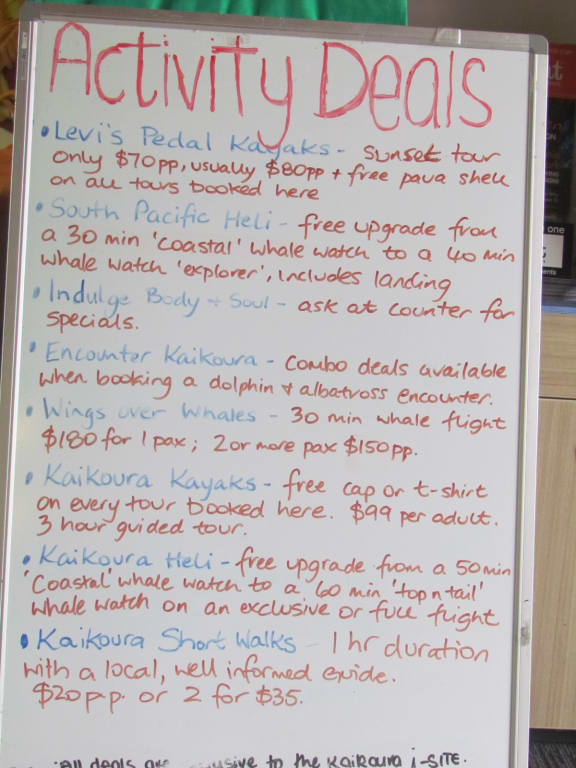 Activity Deals
• Levi's Pedal Kayaks - sunset tour
only $70pp, usually $80pp + free paua shell
on all tours booked here
• South Pacific Heli - free upgrade from
a 30 min 'coastal' whale watch to a 40 min
whale watch 'explorer', includes landing
• Indulge Body + Soul - ask at counter for
specials.
• Encounter Kaikoura - combo deals available
when booking a dolphin & albatross encounter.
• Wings over Whales - 30 min whale flight
$180 for 1 pax; 2 or more pax $150pp.
• Kaikoura Kayaks - free cap or t-shirt
on every tour booked here. $99 per adult.
3 hour guided tour.
• Kaikoura Heli - free upgrade from a 50min
'Coastal' whale watch to a 60 min 'top n tail'
whale watch on an exclusive or full flight
• Kaikoura Short Walks - 1 hr duration
with a local, well informed guide.
$20 p.p. or 2 for $35.
All deals are to the Kaikoura i-SITE.
one